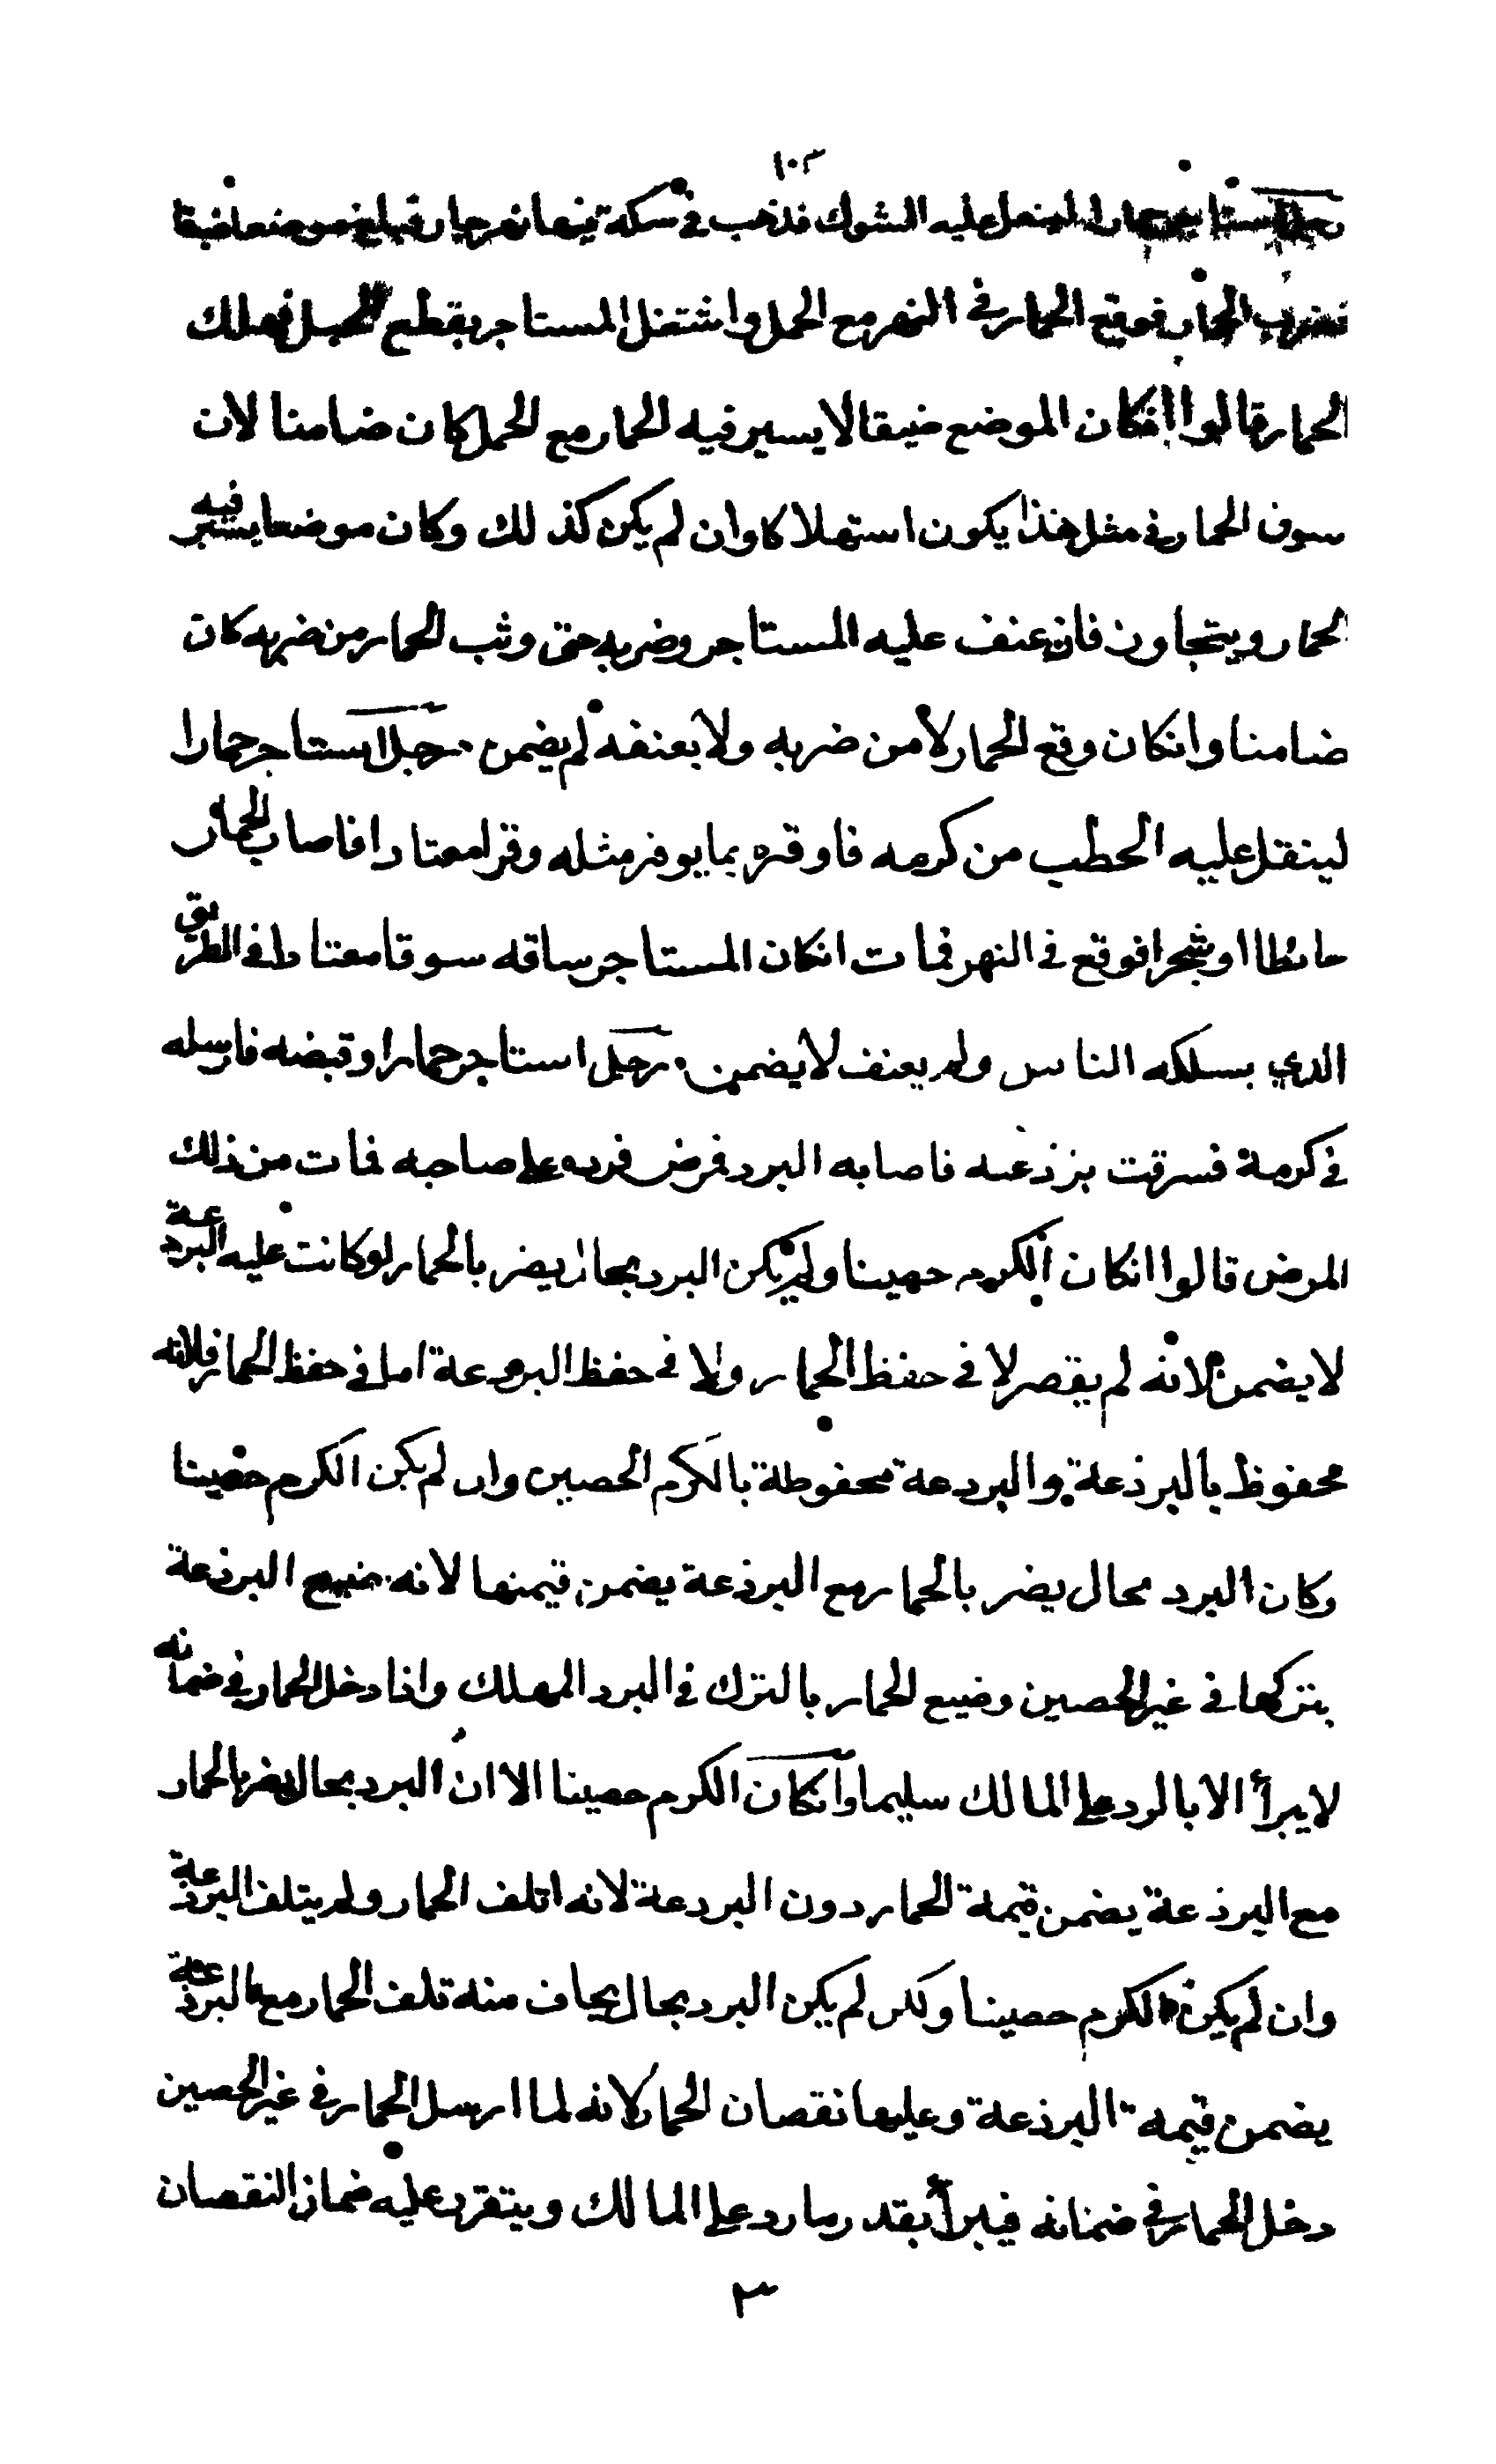 ١٠٢
رجل استأجر حمارا لينقل عليه الشوك فذهب في سكة فيها نهر جار فبلغ موضعا ضيقا
فضرب الحمار فوقع الحمار في النهر مع الحمل واشتغل المستاجر بقطع الحبل فهلك
الحمار قالوا انكان الموضع ضيقا لا يسير فيه الحمار مع الحمل كان ضامنا لان
سوق الحمار في مثل هذا يكون استهلاكا وان لم يكن كذلك وكان موضعا يسير فيه
الحمار ويتجاوز فان عنف عليه المستاجر وضربه حتى وثب الحمار من ضربه كان
ضامنا وانكان وقع الحمار لا من ضربه ولا بعنفه لم يضمن رجل استاجر حمارا
لينقل عليه الحطب من كرمه فاوقره بما يوقر مثله وقرا معتادا فاصاب الحمار
حائطا او شجرا فوقع في النهر فمات انكان المستاجر ساقه سوقا معتادا في الطريق
الذي يسلكه الناس ولم يعنف لا يضمن رجل استاجر حمارا وقبضه فارسله
في كرمة فسرقت برذعته فاصابه البرد فمرض فرده على صاحبه فمات من ذلك
المرض قالوا انكان الكرم حصينا ولم يكن البرد بحال يضر بالحمار لو كانت عليه البردعة
لا يضمن لانه لم يقصر لا في حفظ الحمار ولا في حفظ البردعة اما في حفظ الحمار فلانه
محفوظ بالبرذعة والبردعة محفوظة بالكرم الحصين وان لم يكن الكرم حصينا
وكان البرد بحال يضر بالحمار مع البرذعة يضمن قيمتها لانه ضيع البرذعة
بتركها في غير الحصين وضيع الحمار بالترك في البرد المهلك واذا دخل الحمار في ضمانه
لا يبرأ الا بالرد على المالك سليما وانكان الكرم حصينا الا ان البرد بحال يضر بالحمار
مع البرذعة يضمن قيمة الحمار دون البردعة لانه اتلف الحمار ولم يتلف البرذعة
وان لم يكن الكرم حصينا ولكن لم يكن البرد بحال يخاف منه تلف الحمار مع البرذعة
يضمن قيمة البرذعة وعليها نقصان الحمار لانه لما ارسل الحمار في غير الحصين
دخل الحمار في ضمانه فيبرأ بقدر ما رد على المالك ويتقرر عليه ضمان النقصان
٣